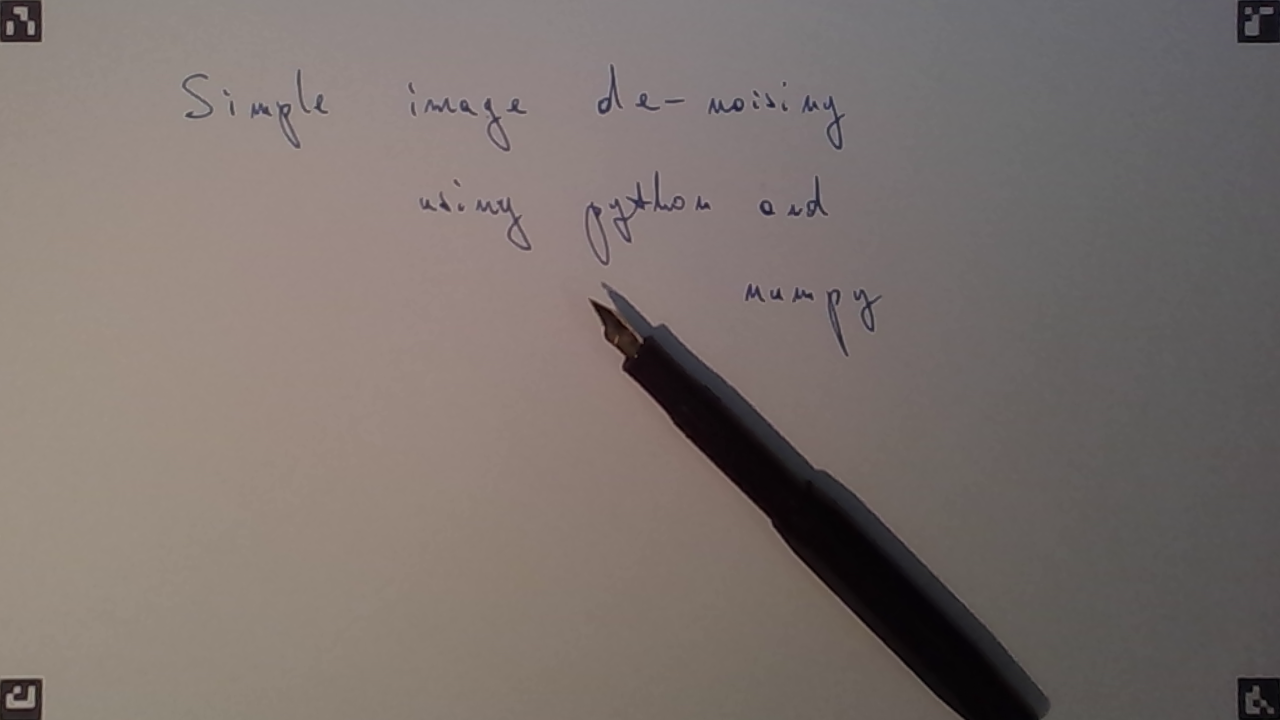 Simple image de-noising
using python and
numpy